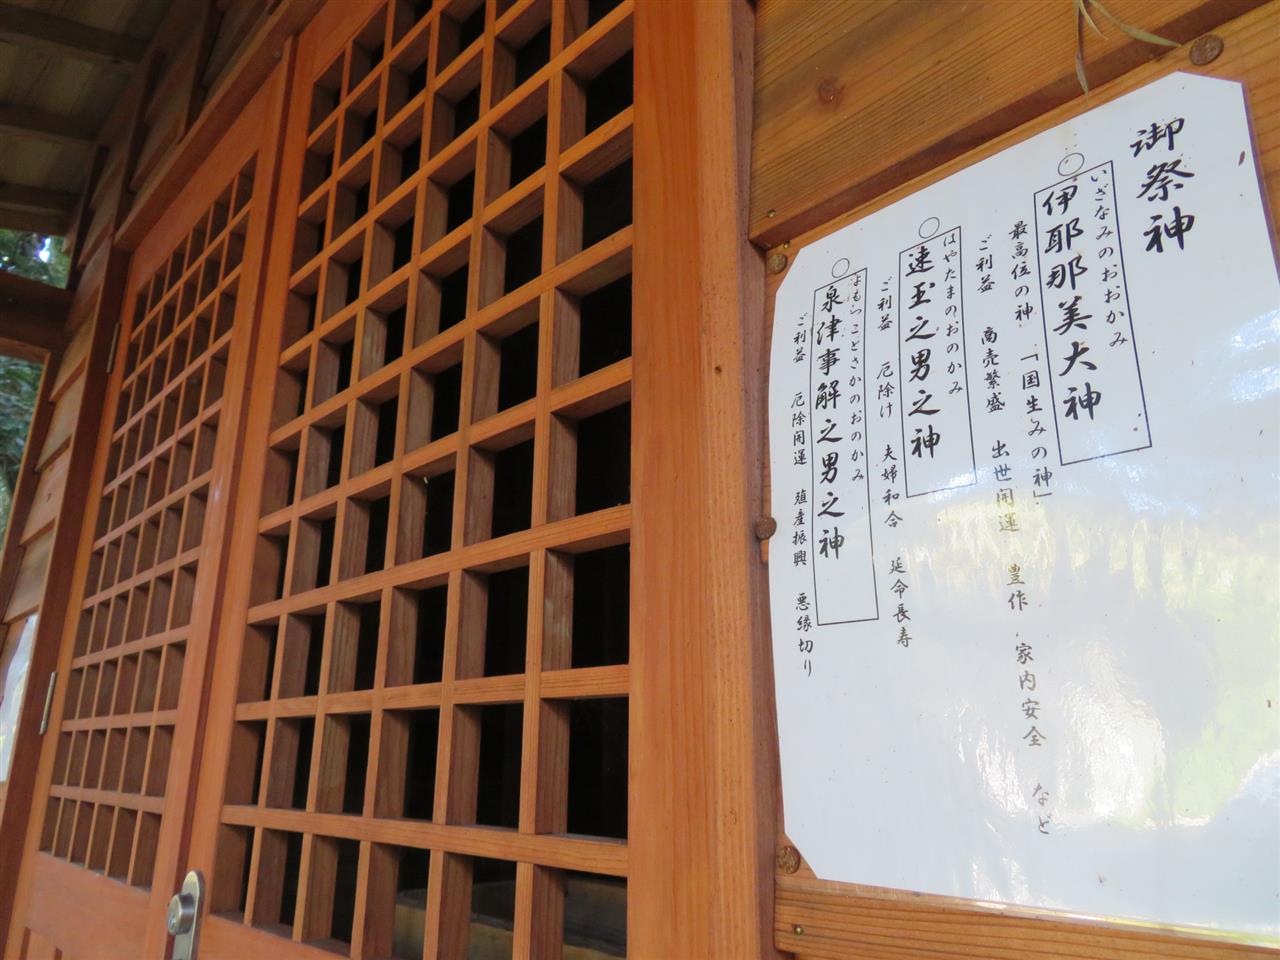 御祭神
○
いざなみのおおかみ
伊耶那美大神
最高位の神 「国生みの神」
ご利益 商売繁盛 出世開運 豊作 家内安全 など
○
はやたまのおのかみ
速玉之男之神
ご利益 厄除け 夫婦和合 延命長寿
○
よもつことさかのおのかみ
泉津事解之男之神
ご利益 厄除開運 殖産振興 悪縁切り